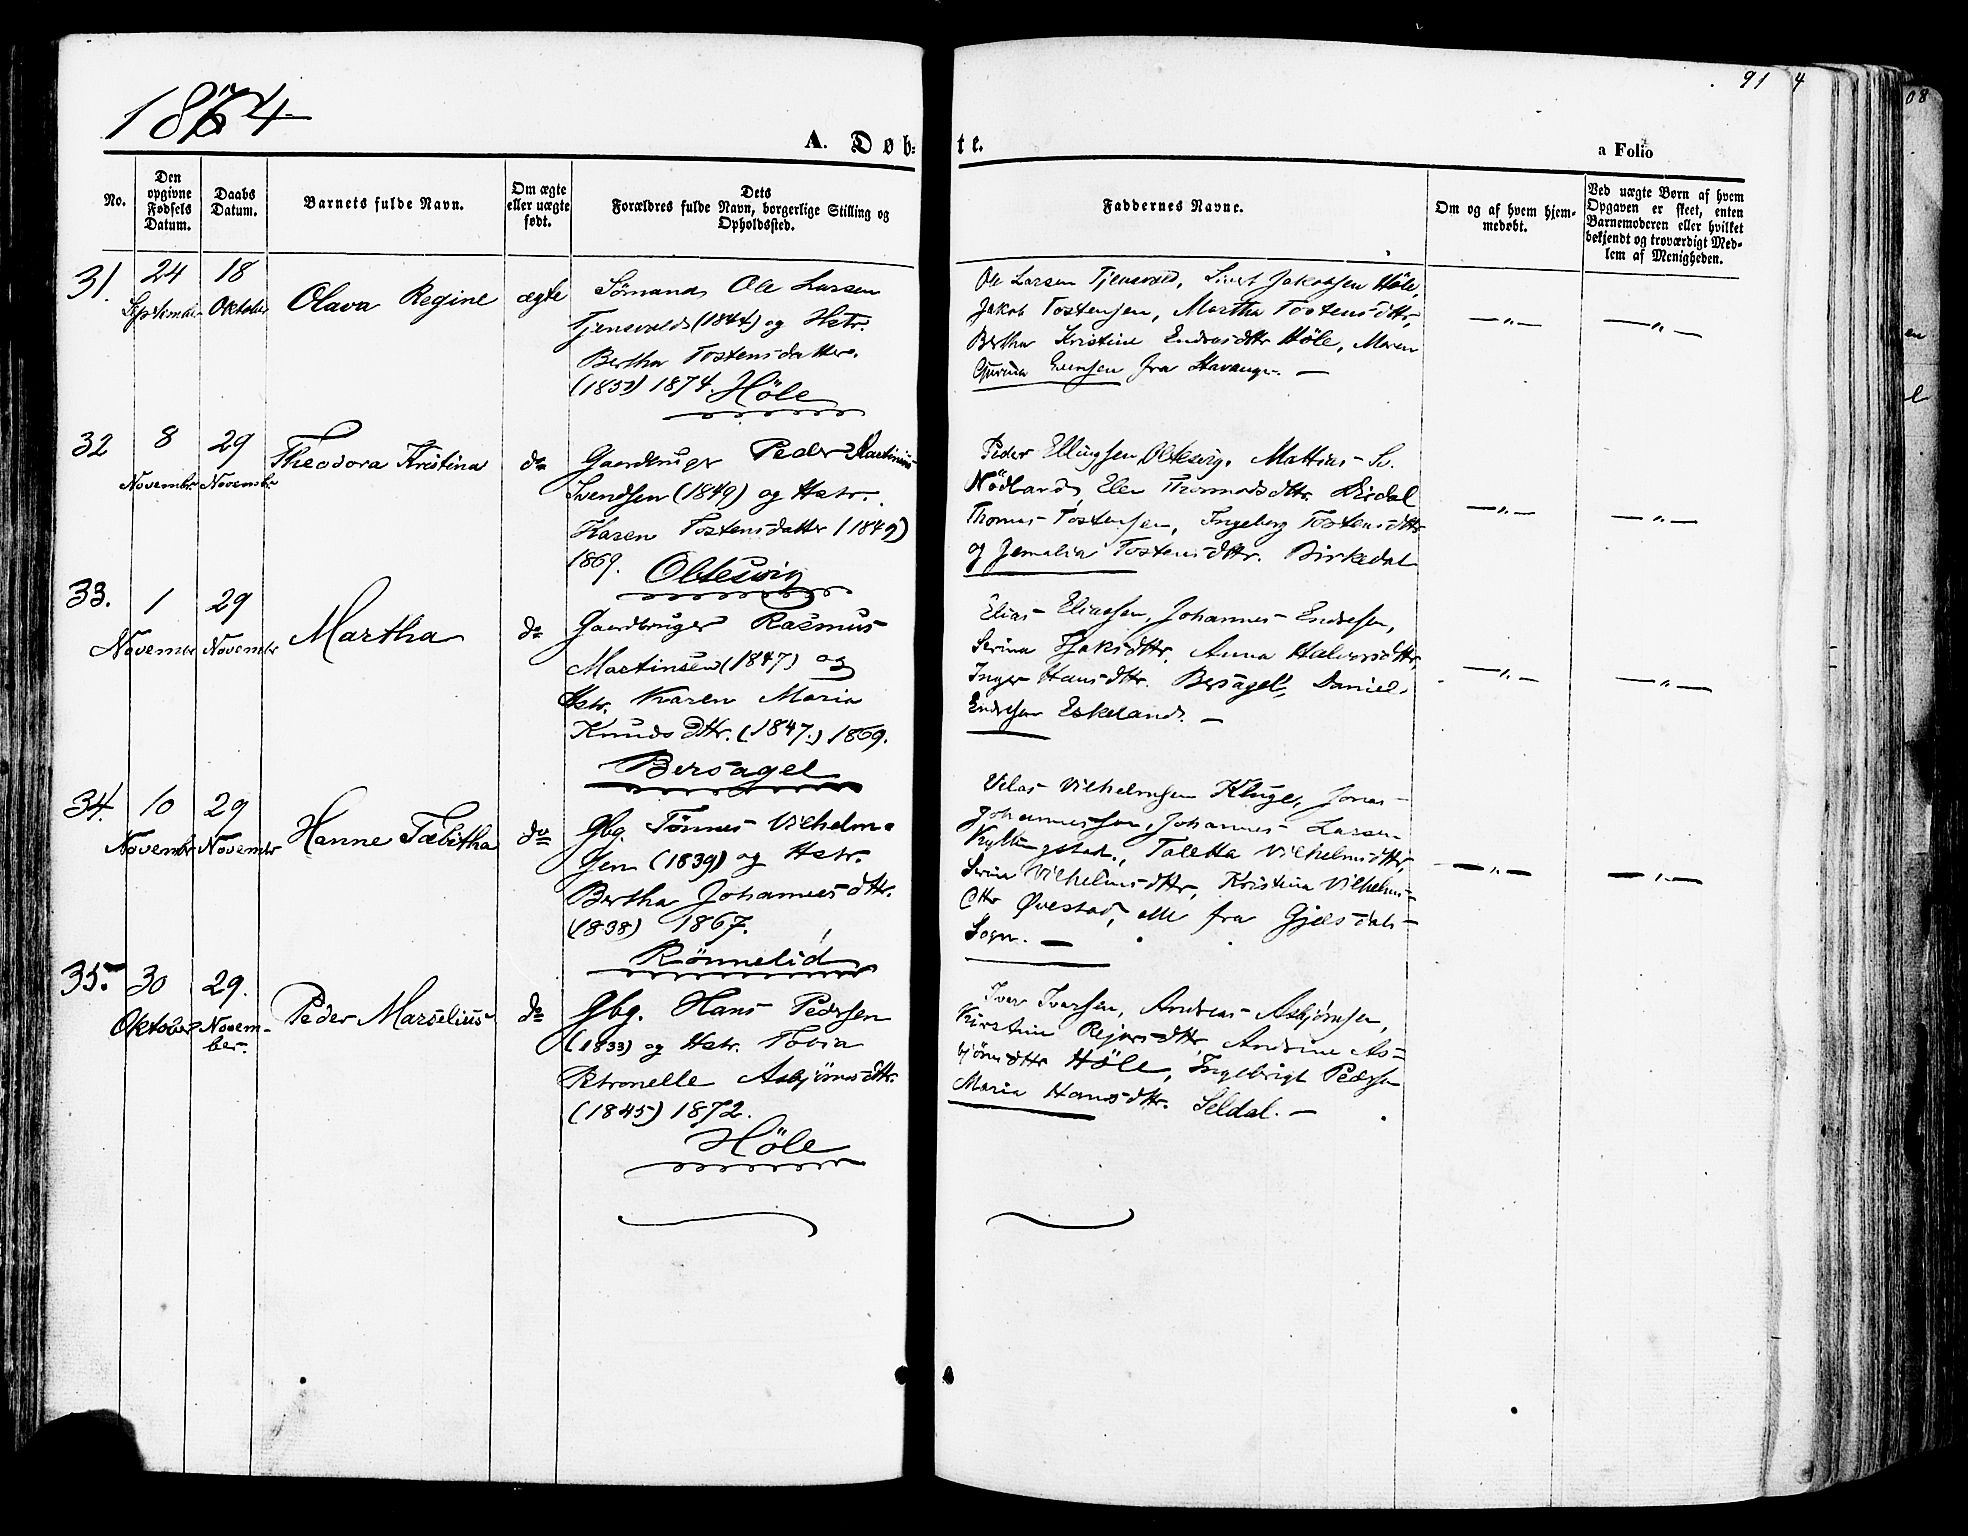 1874
91
4
08
A. Døb-
te.
a Folio
No.
Den
opgivne
Fødsels
Datum.
Daabs
Datum.
Barnets fulde Navn.
Om ægte
eller uægte
født.
Dets
Forældres fulde Navn, borgerlige Stilling og
Opholdssted.
Faddernes Navne.
Om og af hvem hjem-
medøbt.
Ved uægte Børn af hvem
Opgaven er skeet, enten
Barnemoderen eller hvilket
bekjendt og troværdigt Med-
lem af Menigheden.
31.
24
September
18
Oktober
Olava Regine
ægte
Sömand Ole Larsen
Tjensvold (1844) og Hstr.
Bertha Tostensdatter.
1874. Höle
Ole Larsen Tjensvold, Sivert Jakobsen Höle,
Jakob Tostensen, Martha Tostensdttr,
Bertha Kristine Endresdttr Höle, Maren
fra Stavanger. —
— " —
— " —
32
8
Novembr
29
Novembr
Theodora Kristina
do
Gaardbruger Peder Martinius
Svendsen (1849) og Hstr.
Karen Tostensdatter (1849)
1869. Oltesvig
Peder Ellingsen Oltesvig. Mattias Sv.
Nödland, Elen Thomasdttr. Dirdal
Thomas Tostensen, Ingeborg Tostensdttr
og Jemalia Tostensdttr. Birkedal
— " —
— " —
33.
1
November
29
November
Martha
do
Gaardbruger Rasmus
Martinsen (1847) og
Hstr. Karen Maria
Knudsdttr. (1847.) 1869.
Bersagel
Elias Eliassen, Johannes Endresen,
Serina dttr. Anna Halvorsdttr,
Inger Hansdttr. Bersagel, Daniel
Endresen Eskeland. —
— " —
— " —
34.
10
November
29
November
Hanne Tabitha
do
Gbg. Tönnes Vilhelm-
sen (1839) og Hstr.
Bertha Johannesdttr.
(1838) 1867.
Rönnelid
Vilhelmsen Kluge, Jonas
Johannessen, Johannes Larsen
Kyllingstad., Taletta Vilhelmsdttr,
Serina Vilhelmsdttr, Kristina Vilhelms-
dttr Øvestad, alle fra Gjesdals-
Sogn. —
— " —
— " —
35.
30
Oktober
29.
Novem-
ber.
Peder Marselius
do
Gbg. Hans Pedersen
(1833) og Hstr. Tovia
Petronelle Asbjörnsdttr.
(1845) 1872.
Höle
Iver Iversen, Andreas Asbjörnsen,
Kirstine Rejersdttr Andrine As-
björnsdttr Höle, Ingebrigt Pedersen
Maria Hansdttr. Seldal. —